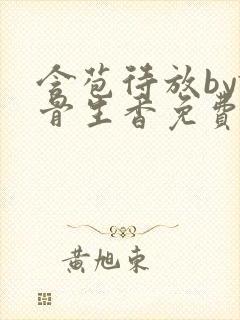 含苞待放by
骨生香免费
黄旭东